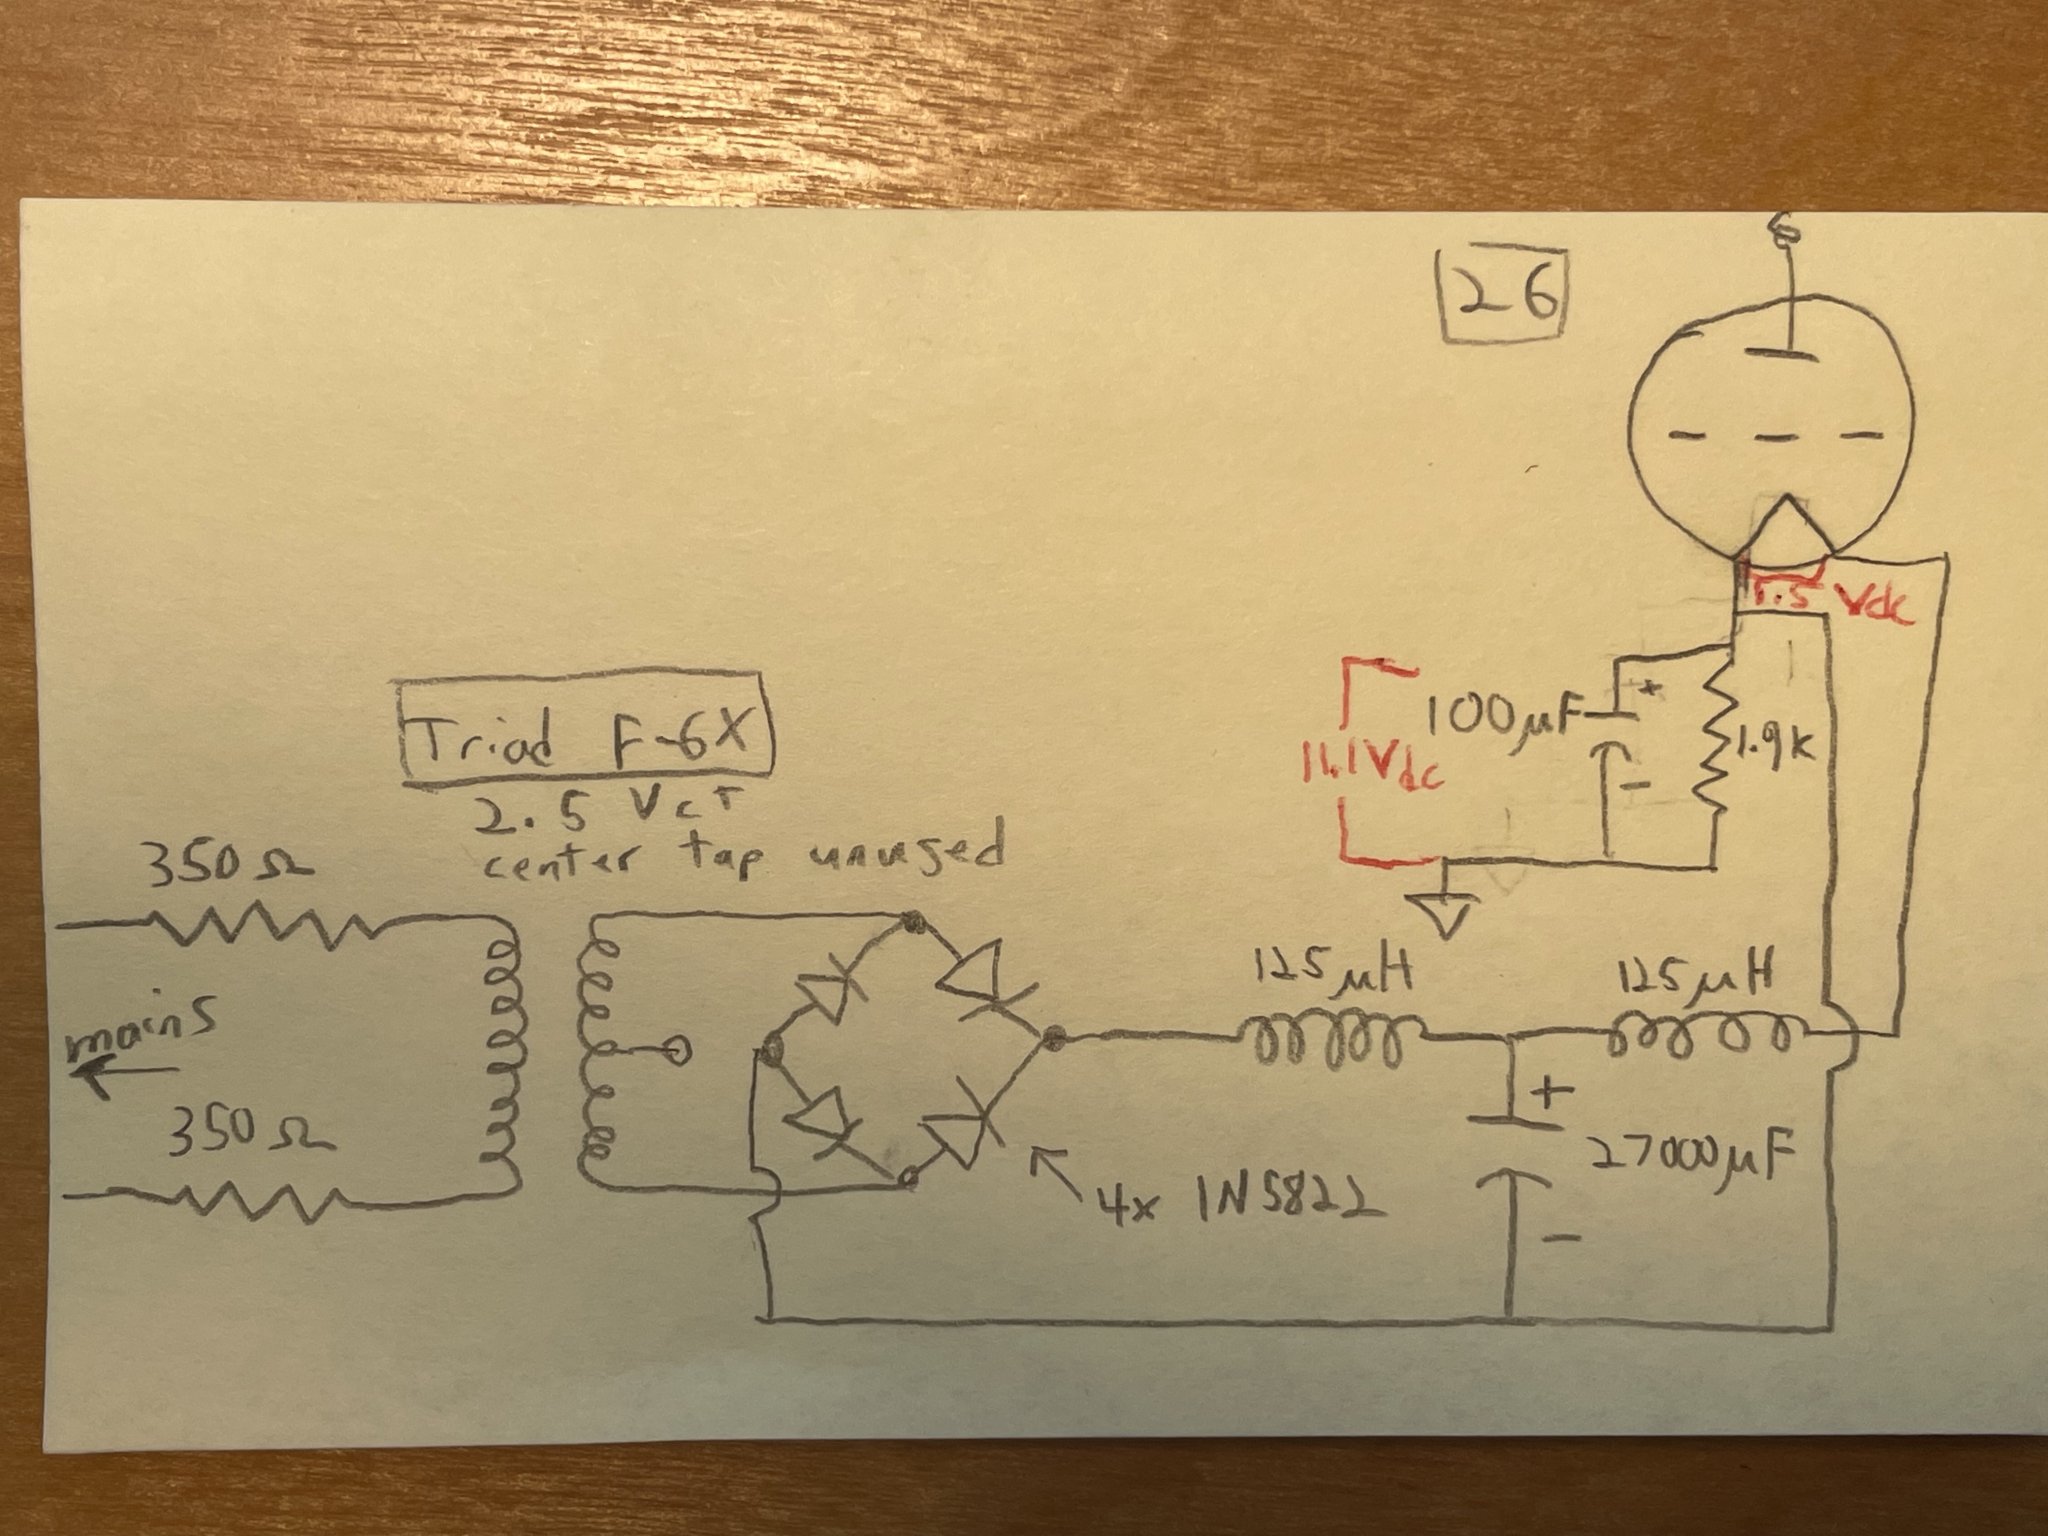 26
1.5 Vdc
+
100µF
1.9k
11.1Vdc
-
Triad F-6X
2.5 VCT
center tap unused
350Ω
mains
350Ω
125µH
125µH
+
27000µF
-
4x 1N5822